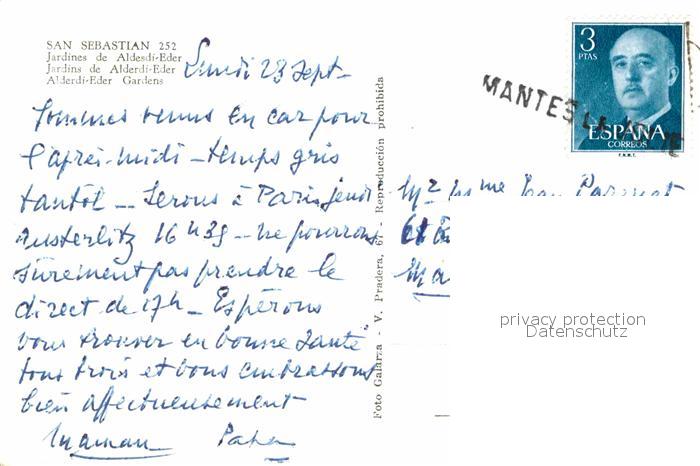 SAN SEBASTIAN 252
Jardines de Aldesdi-Eder
Jardins de Alderdi-Eder
Alderdi-Eder Gardens
Lundi 23 Sept-
Sommes venus en car pour
l'après-midi - temps gris
tantôt - Serons à Paris jeudi
Austerlitz 16 h 39 - ne pourrons
sûrement pas prendre le
direct de 17h - Espérons
vous trouver en bonne santé
tous trois et vous embrassons
bien affectueusement
Maman Papa
Foto Galarza - V. Pradera, 67 - Reproducción prohibida
3
PTAS
ESPAÑA
CORREOS
F.N.M.T.
MANTES LA
Mr Mme
privacy protection
Datenschutz